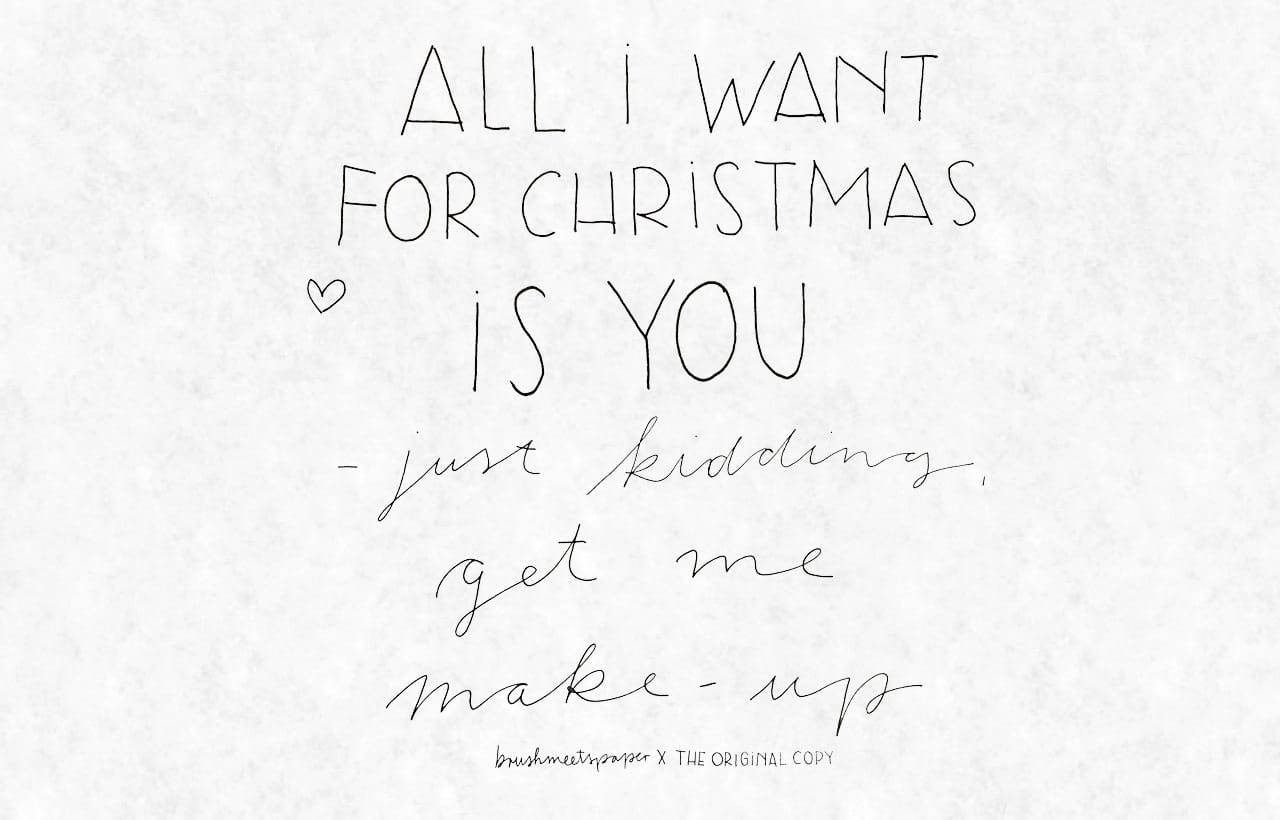 ALL i WANT
FOR CHRiSTMAS
iS YOU
- just kidding,
get me
make-up
brushmeetspaper X THE ORiGiNAL COPY